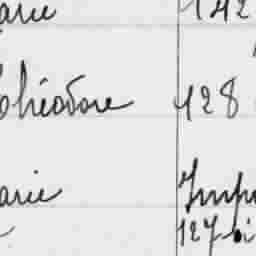 arie 142
Théodore 128
arie Imp
127 bi